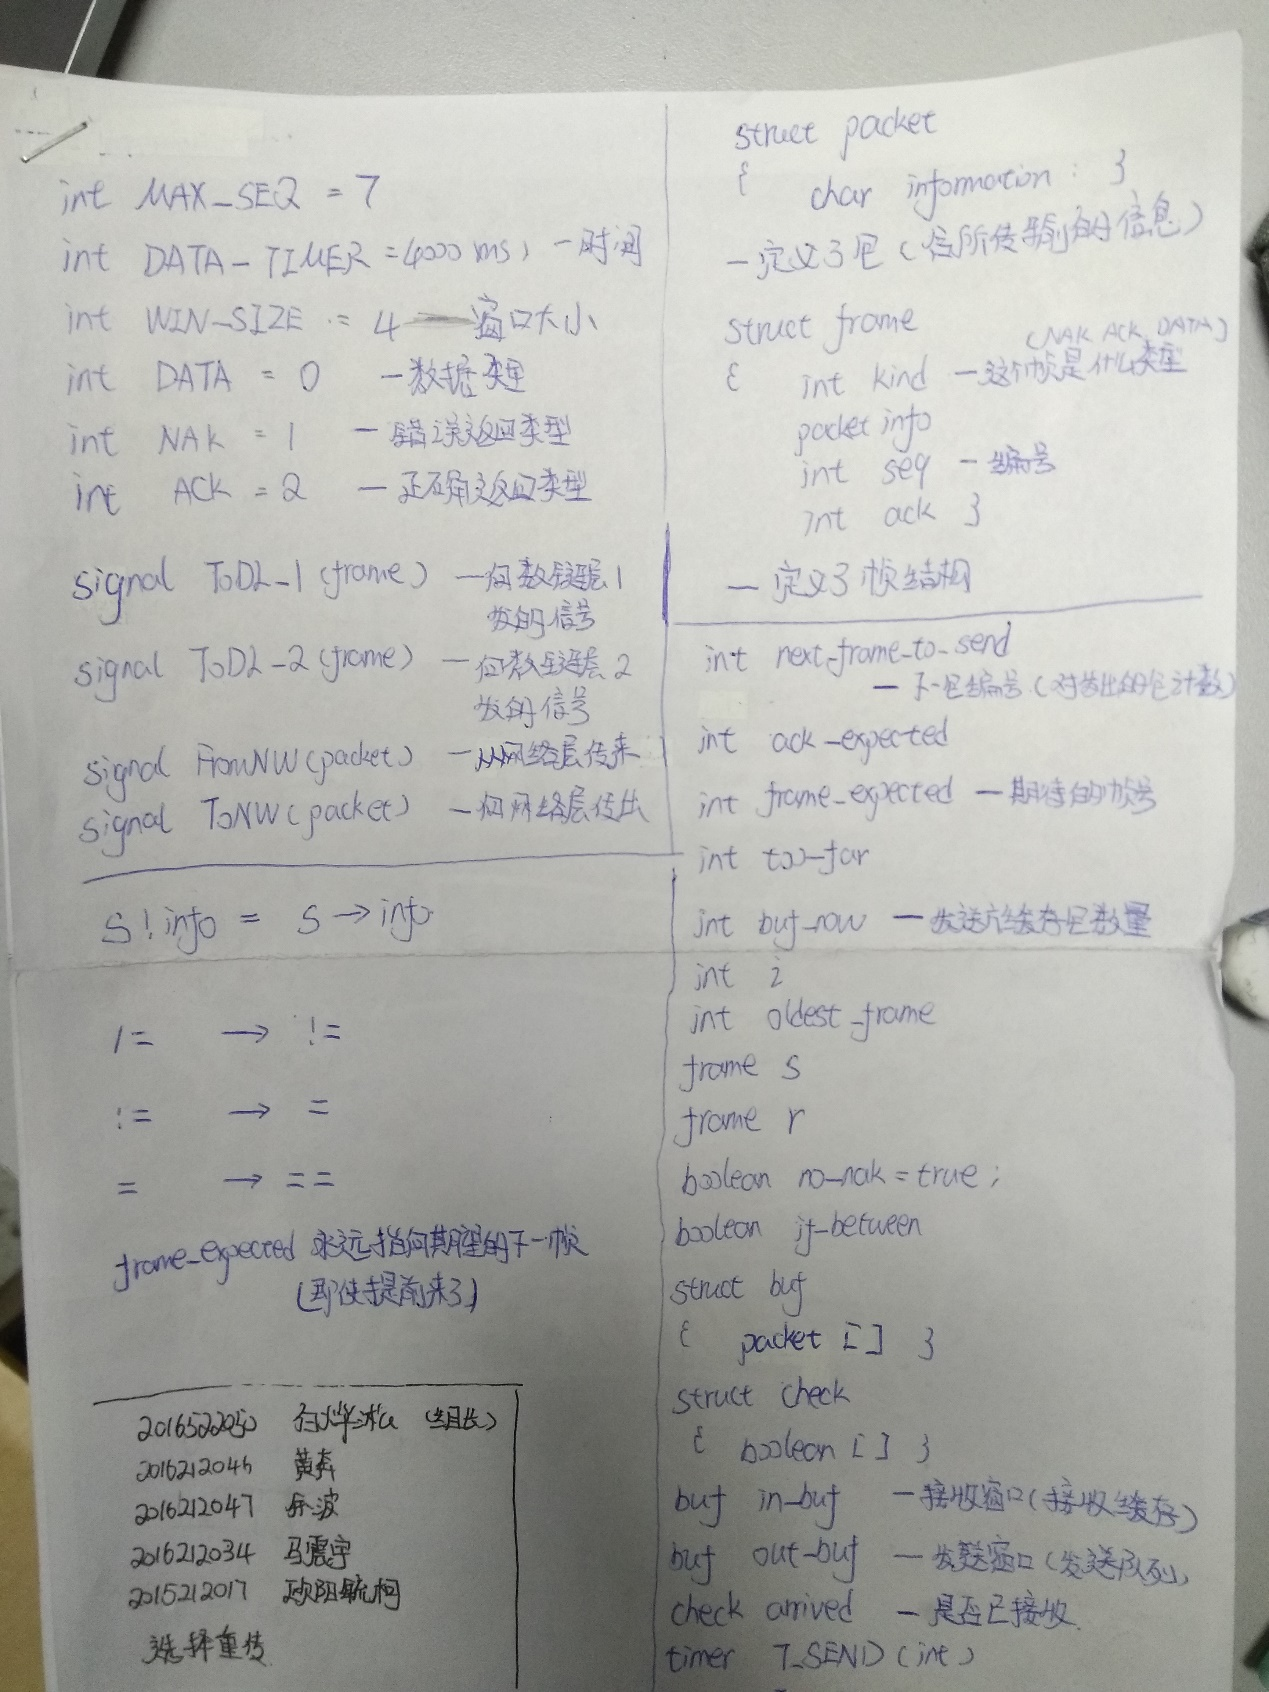 int MAX_SEQ = 7
int DATA_TIMER = 4000 ms) —时间
int WIN_SIZE := 4 — 窗口大小
int DATA = 0 —数据类型
int NAK = 1 — 错误返回类型
int ACK = 2 — 正确返回类型
signal ToDL_1 (frame) —向数链层1
发的信号
signal ToDL_2 (frame) —向数链层2
发的信号
signal FromNW (packet) —从网络层传来
signal ToNW (packet) —向网络层传出
S!info = S→info
/= → !=
:= → =
= → ==
frame_expected 永远指向期望的下一帧
(即使提前来了)
2016522050 (组长)
2016212046 黄奔
2016212047 乔波
2016212034 马震宇
2015212017 欧阳毓柯
选择重传
struct packet
{ char information; }
—定义了包(信所传输的信息)
struct frame
(NAK ACK DATA)
{ int kind —这个帧是什么类型
packet info
int seq —编号
int ack }
— 定义了帧结构
int next_frame_to_send
— 下一包编号(对发出的包计数)
int ack_expected
int frame_expected —期待的帧号
int too_far
int buf_now —发送方缓存包数量
int i
int oldest_frame
frame s
frame r
boolean no_nak = true;
boolean if_between
struct buf
{ packet [] }
struct check
{ boolean [] }
buf in_buf —接收窗口(接收缓存)
buf out_buf —发送窗口(发送队列)
check arrived —是否已接收
timer T_SEND (int)